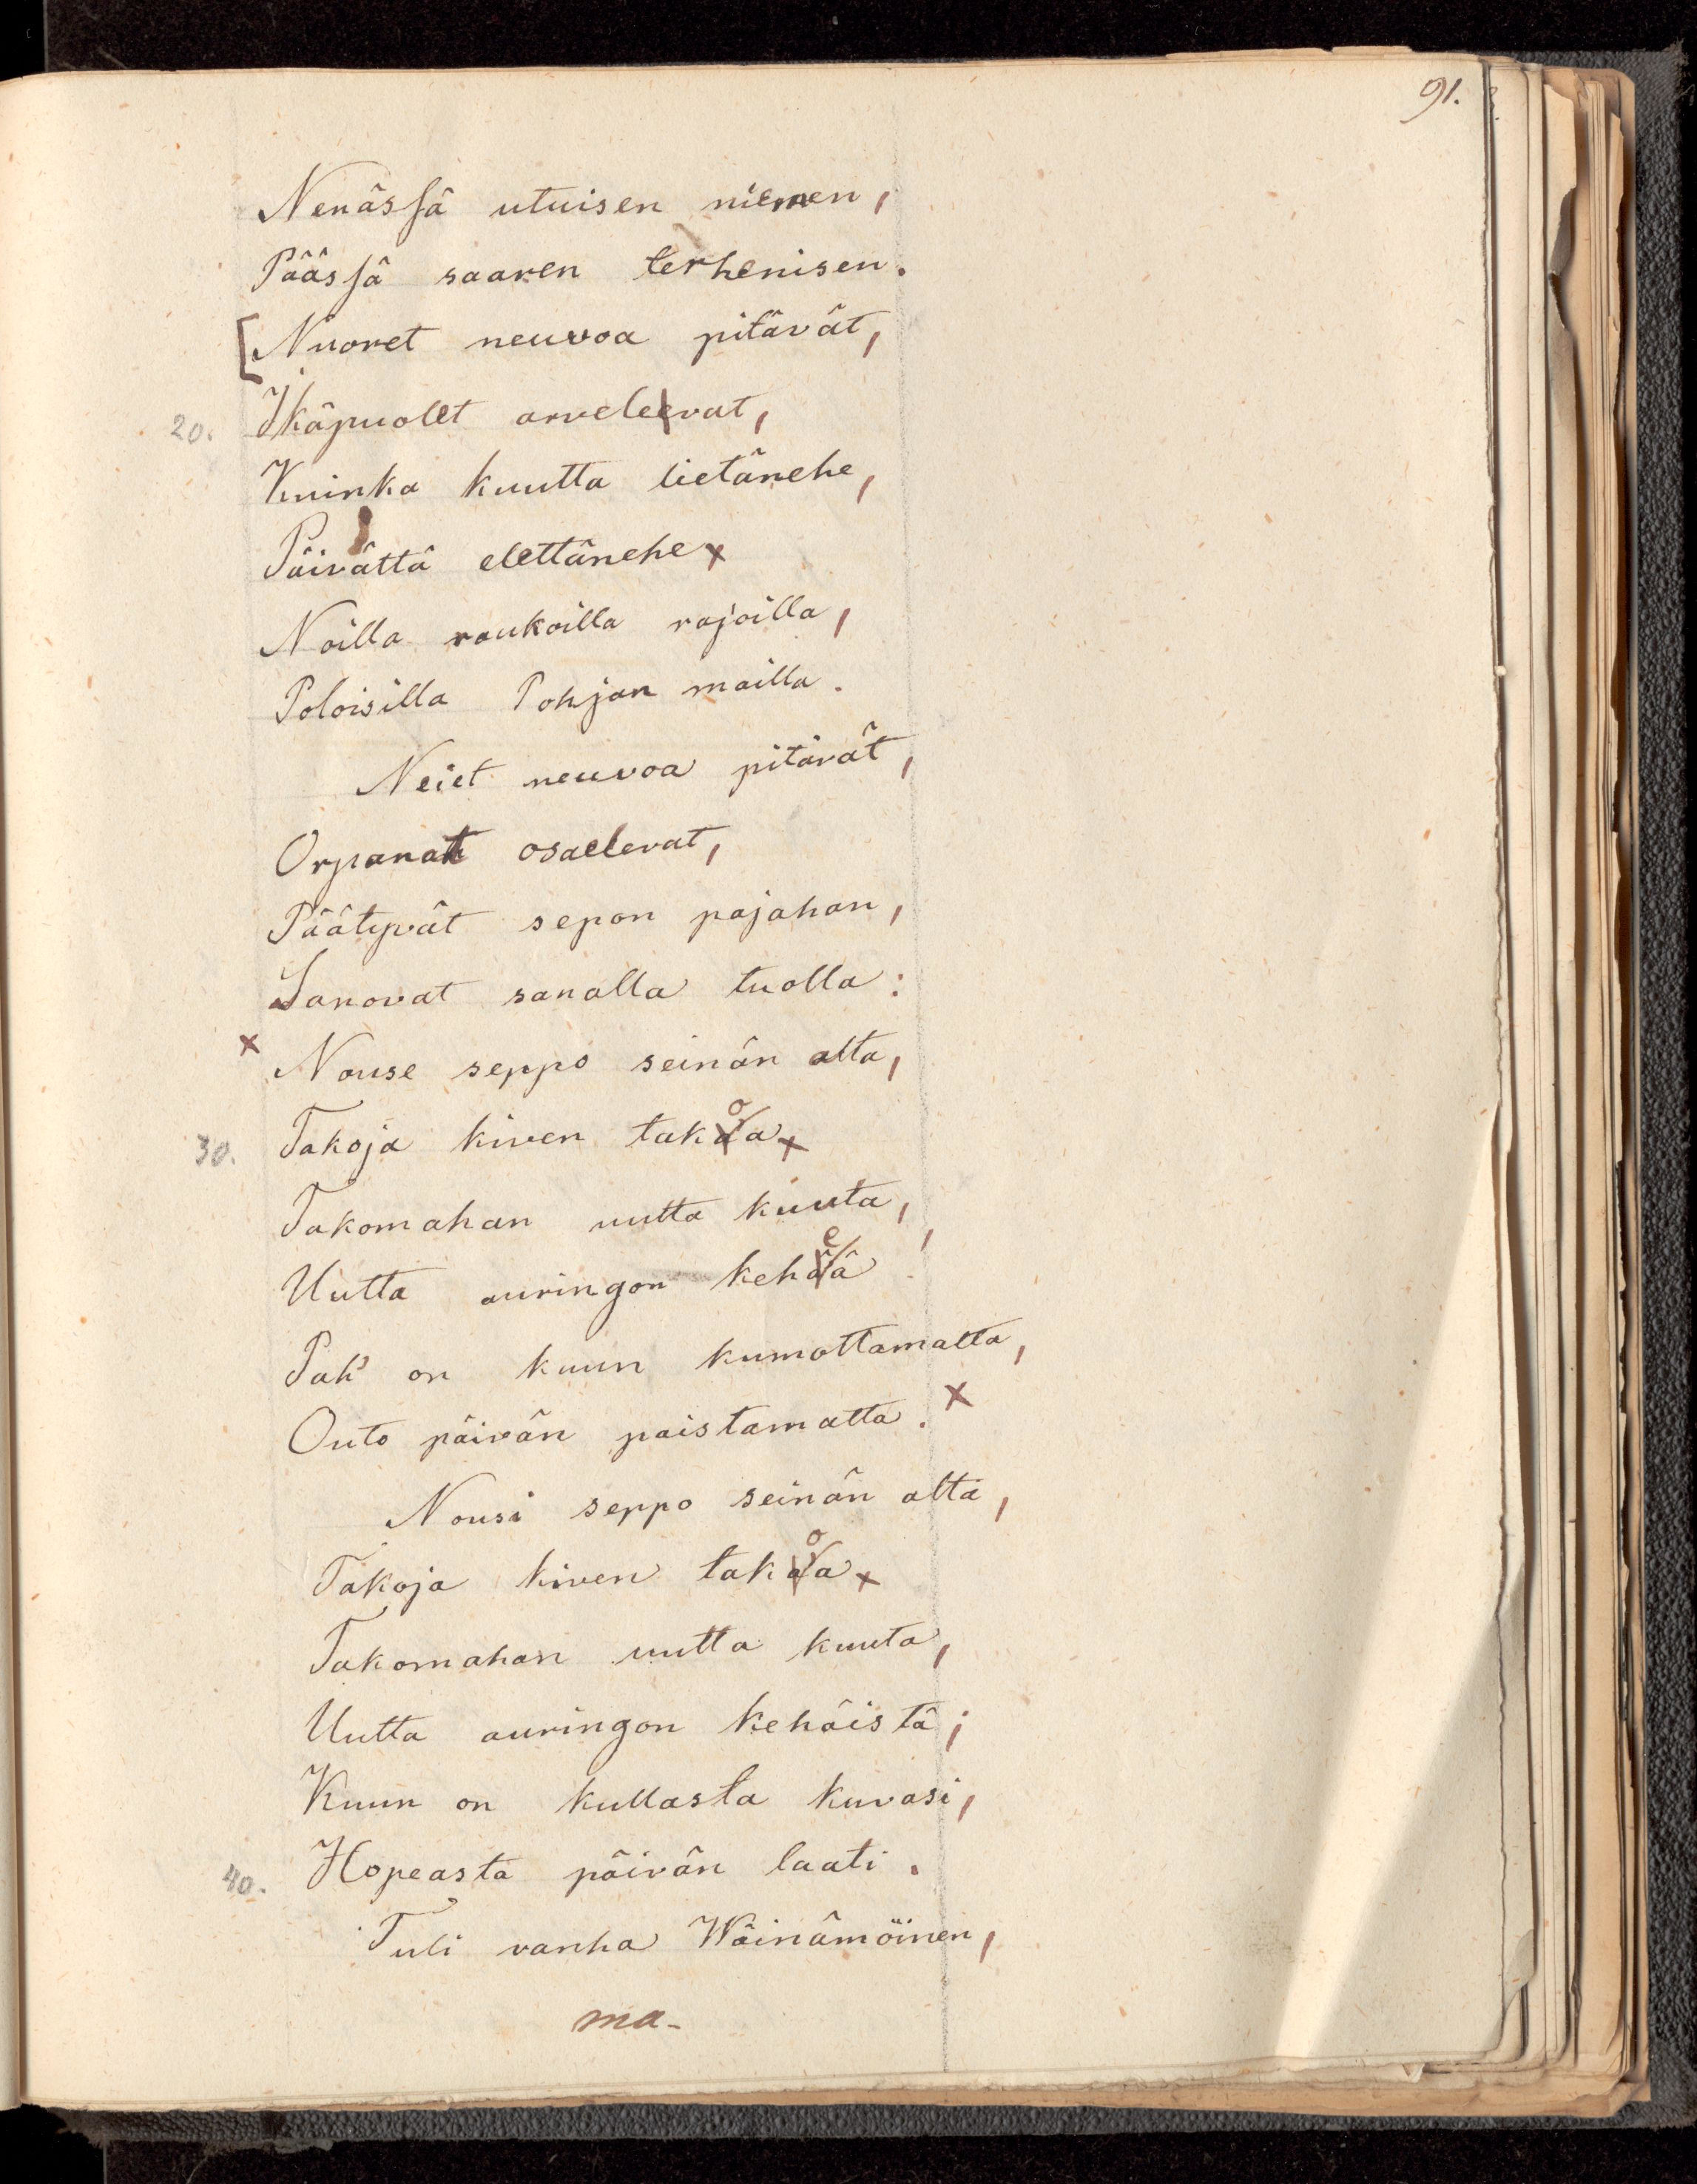 91.
Nenässä utuisen niemen,
Päässä saaren terhenisen.
[Nuoret neuvoa pitävät,
20. Ikäpuolet arvelevat,
Kuinka kuutta lietänehe,
Päivättä elettänehe
Noilla raukoilla rajoilla,
Poloisilla Pohjan mailla.
Neiet neuvoa pitävät,
Orpanat osaelevat,
Päätyvät sepon pajahan,
Sanovat sanalla tuolla:
× Nouse seppo seinän alta,
30. Takoja kiven takoa
Takomahan uutta kuuta,
Uutta auringon keheä,
Pah' on kuun kumottamatta,
Outo päivän paistamatta. ×
Nousi seppo seinän alta,
Takoja kiven takoa
Takomahan uutta kuuta,
Uutta auringon kehäistä;
Kuun on kullasta kuvasi,
40. Hopeasta päivän laati.
Tuli vanha Wäinämöinen,
ma-